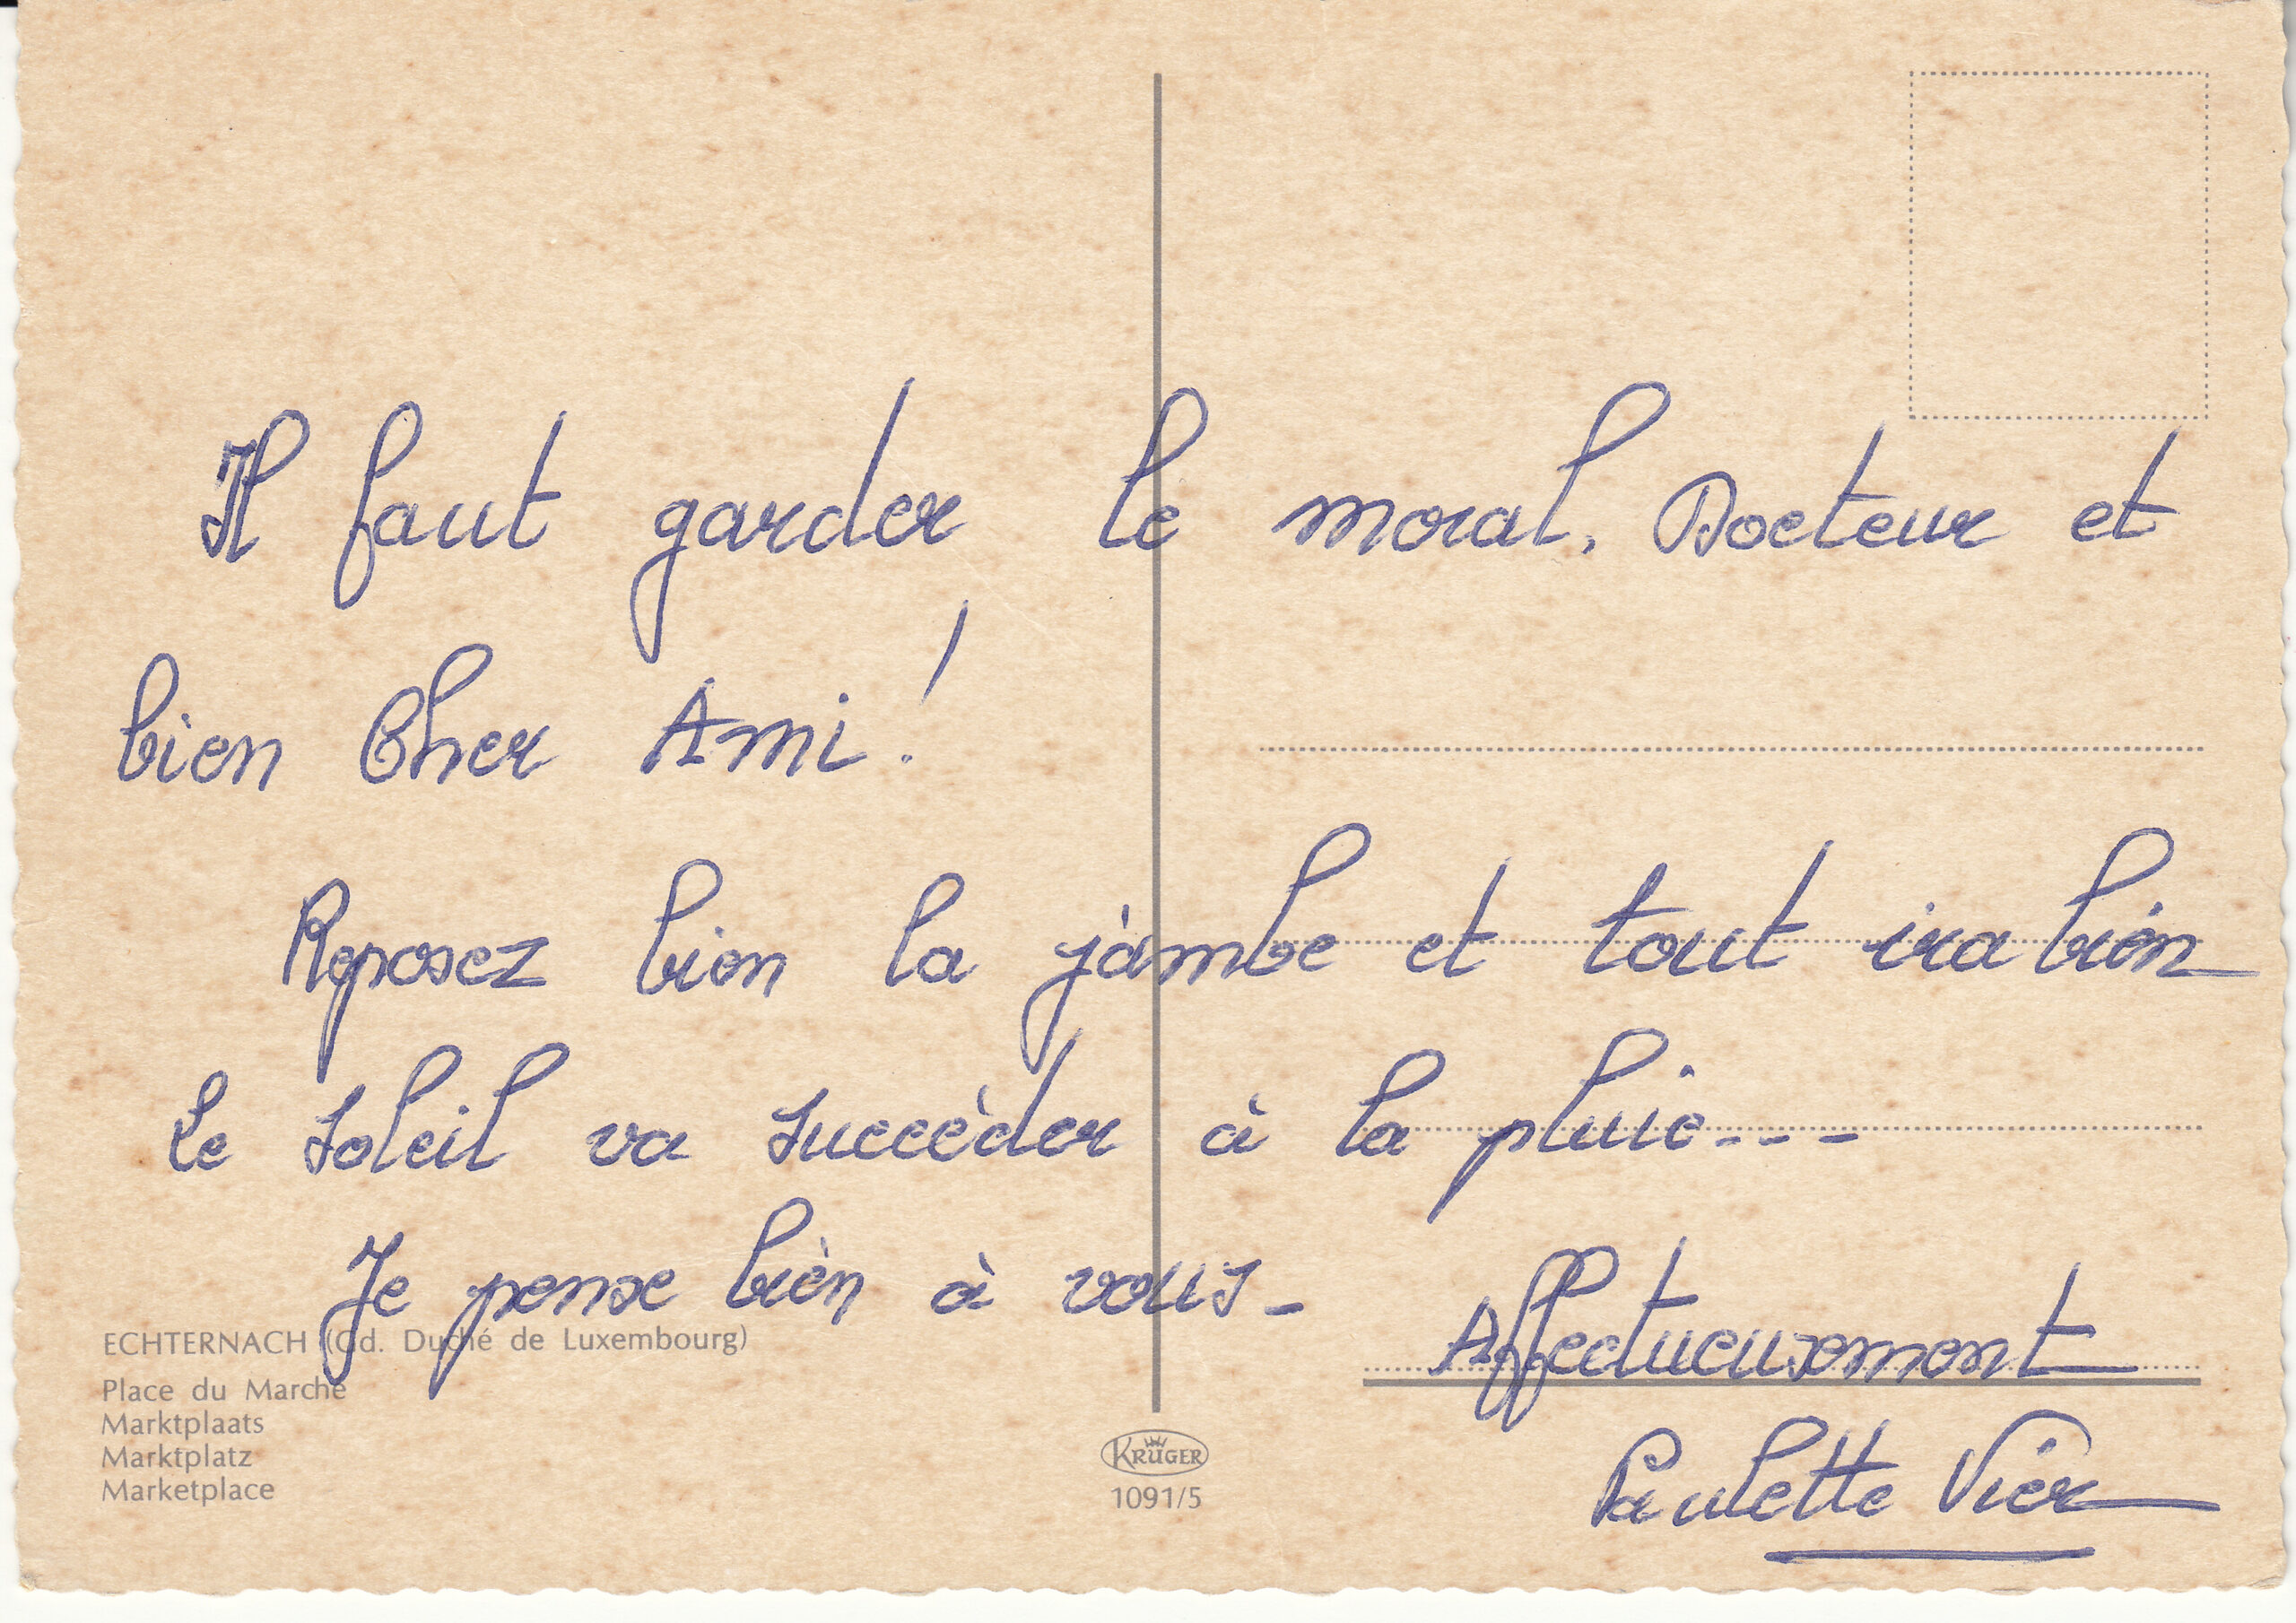 Il faut garder le moral. Docteur et
bien Cher Ami !
Reposez bien la jambe et tout ira bien
Le soleil va succèder à la pluie---
Je pense bien à vous_
Affectueusement
Paulette Vier
ECHTERNACH (Gd. Duché de Luxembourg)
Place du Marché
Marktplaats
Marktplatz
Marketplace
KRÜGER
1091/5